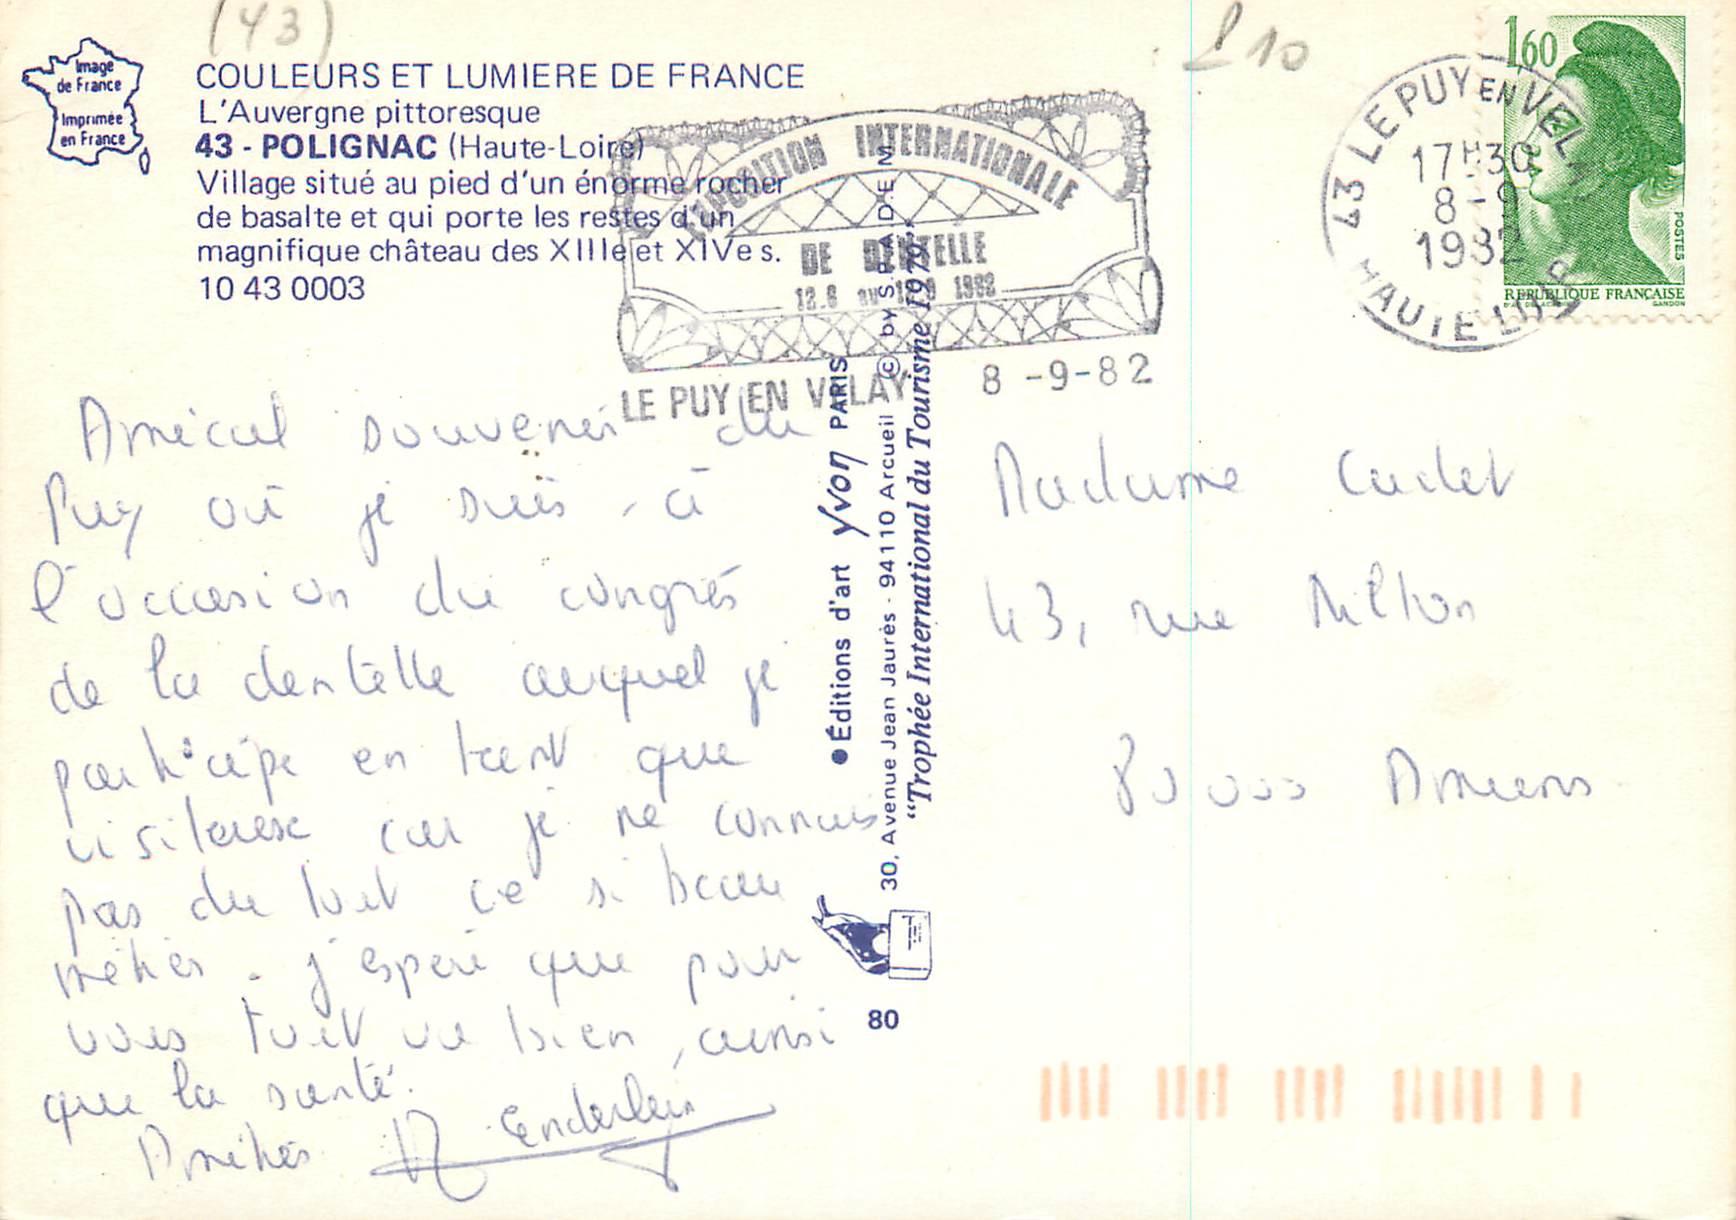 (43)
£ 10
Image
de France
Imprimée
en France
COULEURS ET LUMIERE DE FRANCE
L'Auvergne pittoresque
43 - POLIGNAC (Haute-Loire)
Village situé au pied d'un énorme rocher
de basalte et qui porte les restes d'un
magnifique château des XIIIe et XIVe s.
10 43 0003
EXPOSITION INTERNATIONALE
DE DENTELLE
1982
LE PUY EN VELAY
8 -9-82
43 LE PUY EN VELAY
17H30
8 - 9
1982
HAUTE LOIRE
1,60
POSTES
REPUBLIQUE FRANÇAISE
GANDON
Amical souvenir du
Puy où je suis, à
l'occasion du congrés
de la dentelle auquel je
participe en tant que
visiteuse car je ne connais
pas du tout ce si beau
métier. J'espère que pour
vous tout va bien, ainsi
que la santé.
Amitiés
Enderlein
●Éditions d'art yvon PARIS
30, Avenue Jean Jaurès - 94110 Arcueil © by S.P.A.D.E.M.
“Trophée International du Tourisme 1979„
80
Madame Cadet
43, rue Milton
80000 Amiens